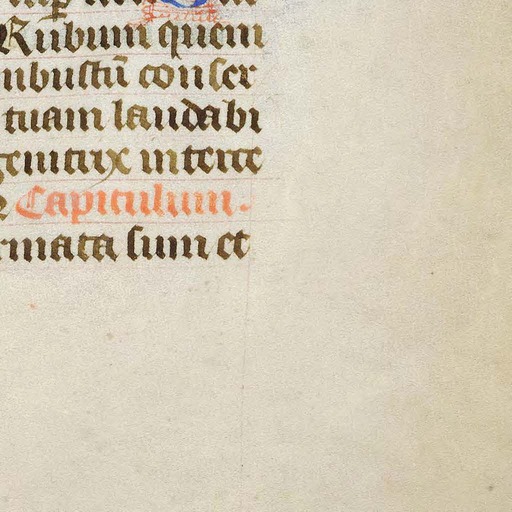 Rubum quem
nbustū conser
tuam laudabi
genitrix interce
Capitulum.
rmata sum et